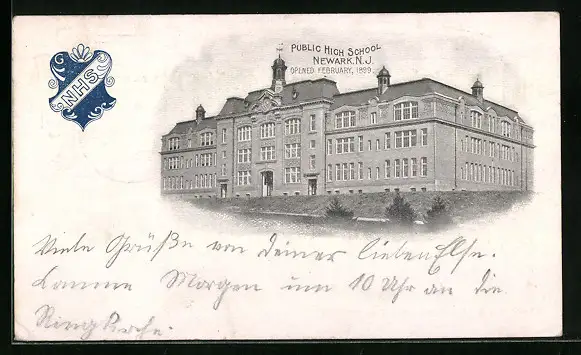 PUBLIC HIGH SCHOOL
NEWARK, N.J.
OPENED FEBRUARY, 1899.
NHS
Viele Grüße von deiner lieben Else.
Komme Morgen um 10 Uhr an die
Ringkirche.